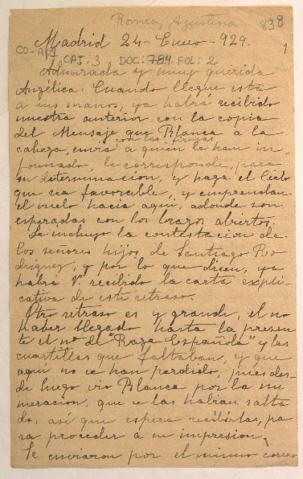 Romea, Agustina
838
Madrid 24-Enero-929.
CO-API CAJ. 3 DOC: 789 FOL: 2
1
Admirada y muy querida
Angélica: Cuando llegue esta
a sus manos, ya habrá recibido
nuestra anterior con la copia
del Mensaje que Blanca a la
con las firmas
cabeza, envió a quien le han in
formado, le corresponde, para
su determinación, y haga el Cielo
que sea favorable, y emprendan
el vuelo hacia aquí, adonde son
esperadas con los brazos abiertos.
Le incluyo la contestación de
los señores hijos de Santiago Ro
dríguez, y por lo que dicen, ya
habrá V. recibido la carta expli
cativa de este retraso.
Otro retraso es y grande, el no
haber llegado hasta la presen
te el nº del "Raza Española" y las
cuartillas que faltaban, y que
aquí no se han perdido, pues des-
de luego vio Blanca por la nu
meración, que se las habían salta
do, así que espera recibirlas, pa
ra proceder a su impresión.
Le enviaron por el mismo correo